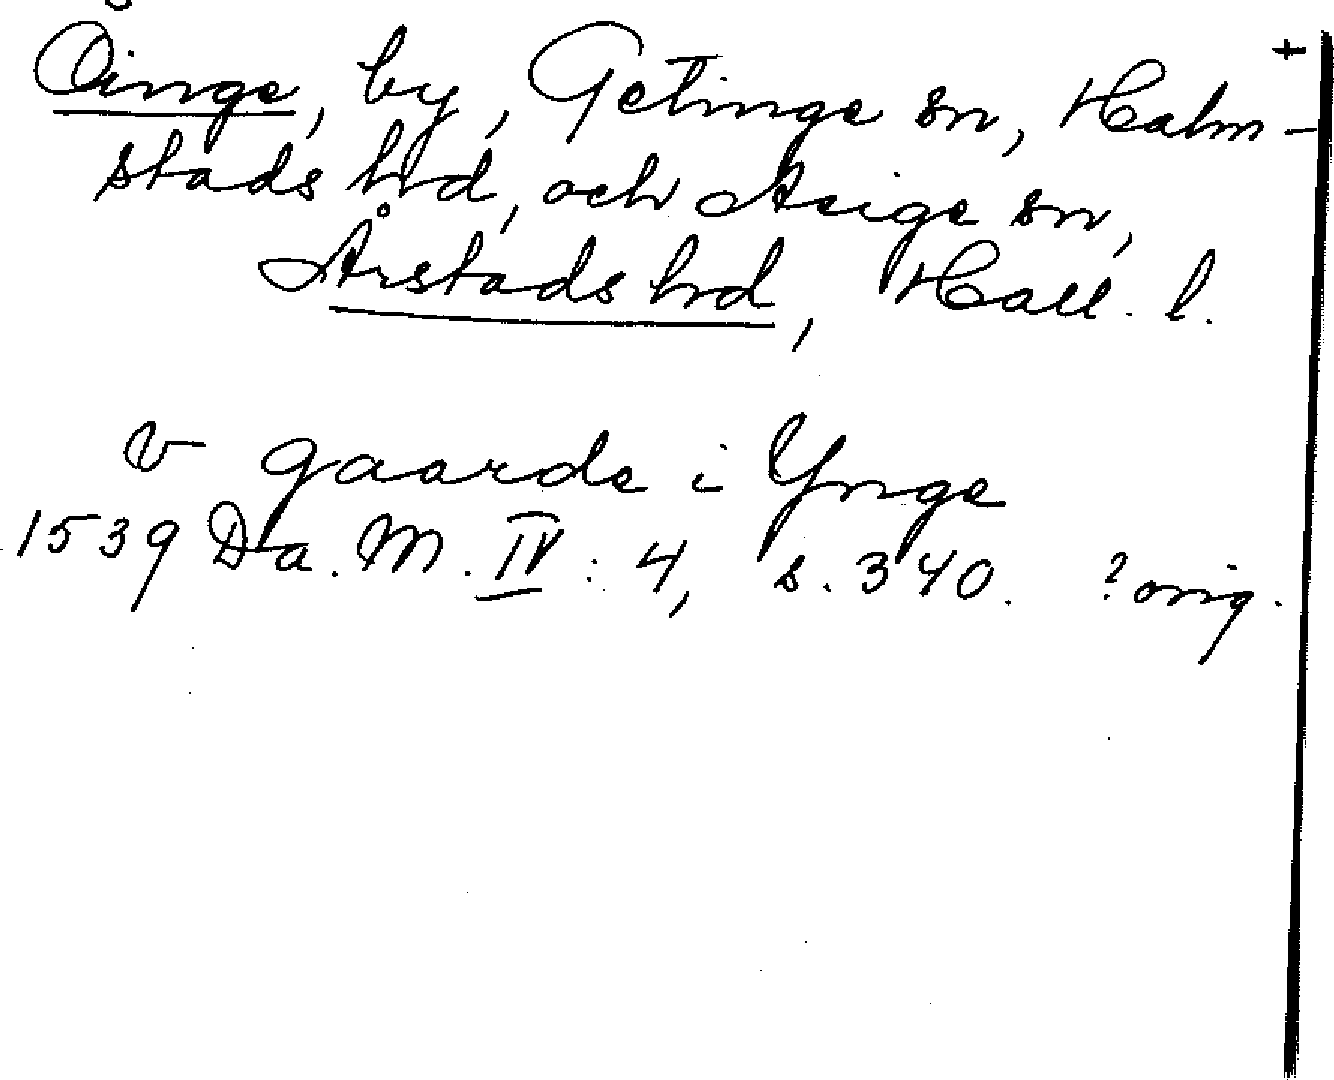 +
Öinge, by, Getinge sn, Halm-
stads hrd, och Asige sn,
Årstads hrd, Hall. l.
v gaarde i Ynge
1539 Da. M. IV : 4, s. 340. ? orig.